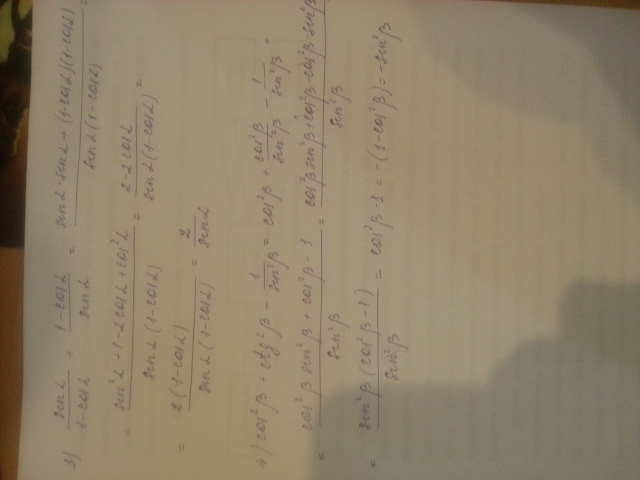 3) sin α / (1 - cos α) + (1 - cos α) / sin α = (sin α · sin α + (1 - cos α)(1 - cos α)) / (sin α (1 - cos α)) =
= (sin² α + 1 - 2 cos α + cos² α) / (sin α (1 - cos α)) = (2 - 2 cos α) / (sin α (1 - cos α)) =
= 2 (1 - cos α) / (sin α (1 - cos α)) = 2 / sin α
4) cos² β + ctg² β - 1 / sin² β = cos² β + cos² β / sin² β - 1 / sin² β =
= (cos² β sin² β + cos² β - 1) / sin² β = (cos² β sin² β + cos² β - cos² β - sin² β) / sin² β =
= sin² β (cos² β - 1) / sin² β = cos² β - 1 = -(1 - cos² β) = - sin² β